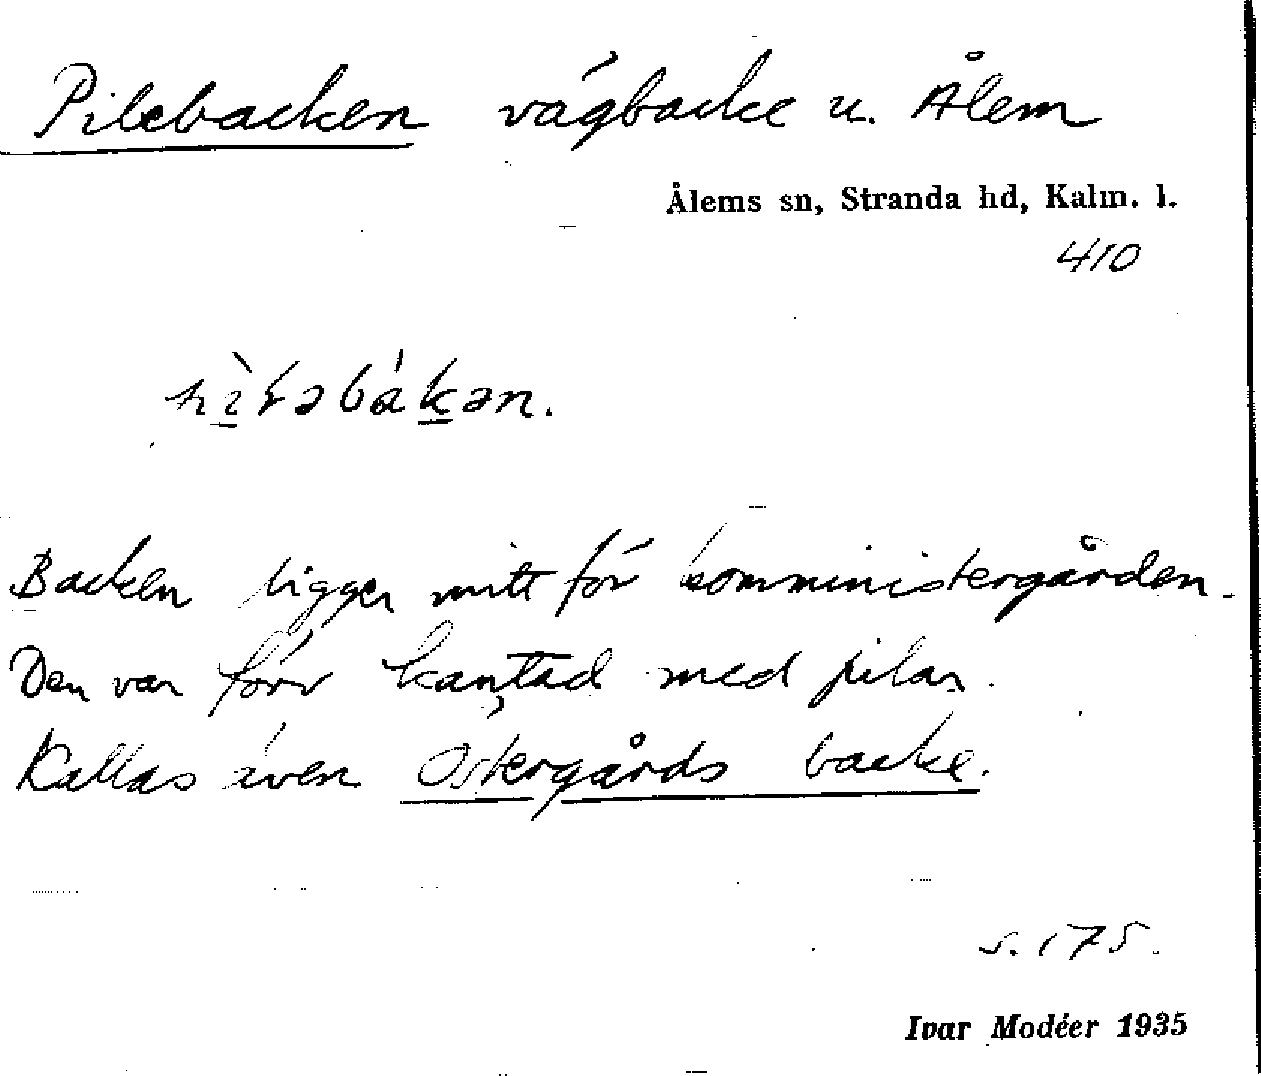 Pilebacken vägbacke u. Ålem
Ålems sn, Stranda hd, Kalm. l.
410
Backen ligger mitt för komministergården.
Den var förr kantad med pilar.
Kallas även Östergårds backe.
s. 175.
Ivar Modéer 1935